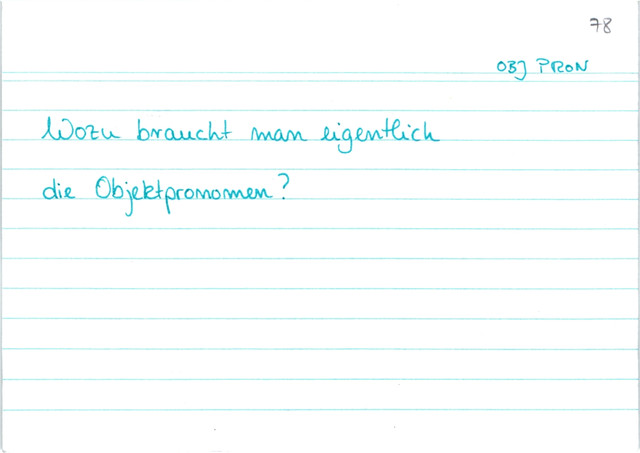 78
OBJ PRON
Wozu braucht man eigentlich
die Objektpronomen?